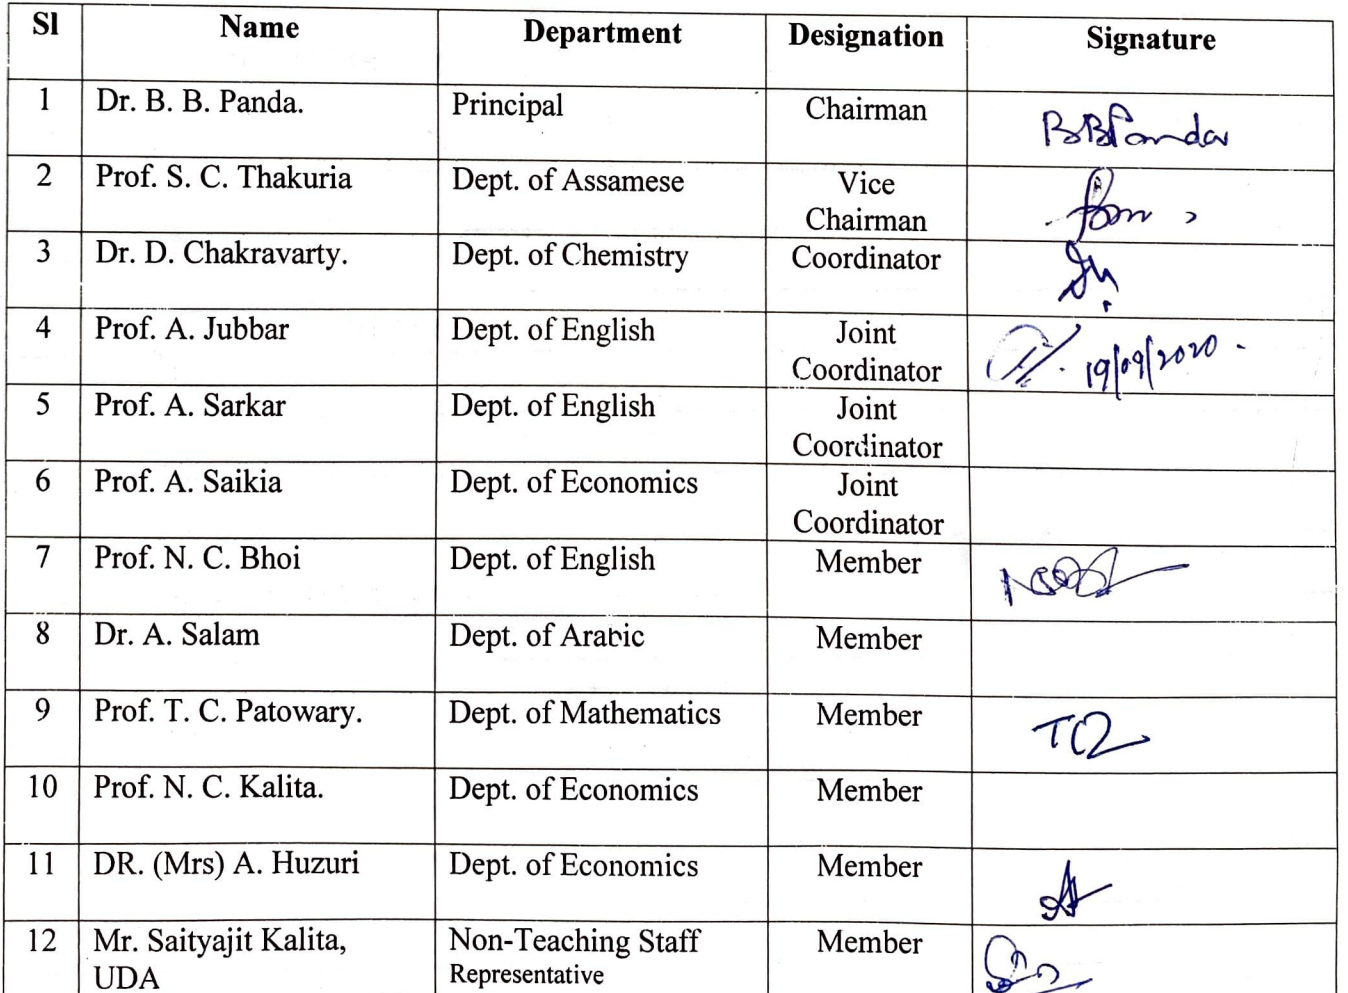 Sl Name Department Designation Signature
1 Dr. B. B. Panda. Principal Chairman BBPanda
2 Prof. S. C. Thakuria Dept. of Assamese Vice
Chairman
3 Dr. D. Chakravarty. Dept. of Chemistry Coordinator
4 Prof. A. Jubbar Dept. of English Joint
Coordinator 19/09/2020
5 Prof. A. Sarkar Dept. of English Joint
Coordinator
6 Prof. A. Saikia Dept. of Economics Joint
Coordinator
7 Prof. N. C. Bhoi Dept. of English Member
8 Dr. A. Salam Dept. of Arabic Member
9 Prof. T. C. Patowary. Dept. of Mathematics Member
10 Prof. N. C. Kalita. Dept. of Economics Member
11 DR. (Mrs) A. Huzuri Dept. of Economics Member
12 Mr. Saityajit Kalita, Non-Teaching Staff Member
UDA Representative